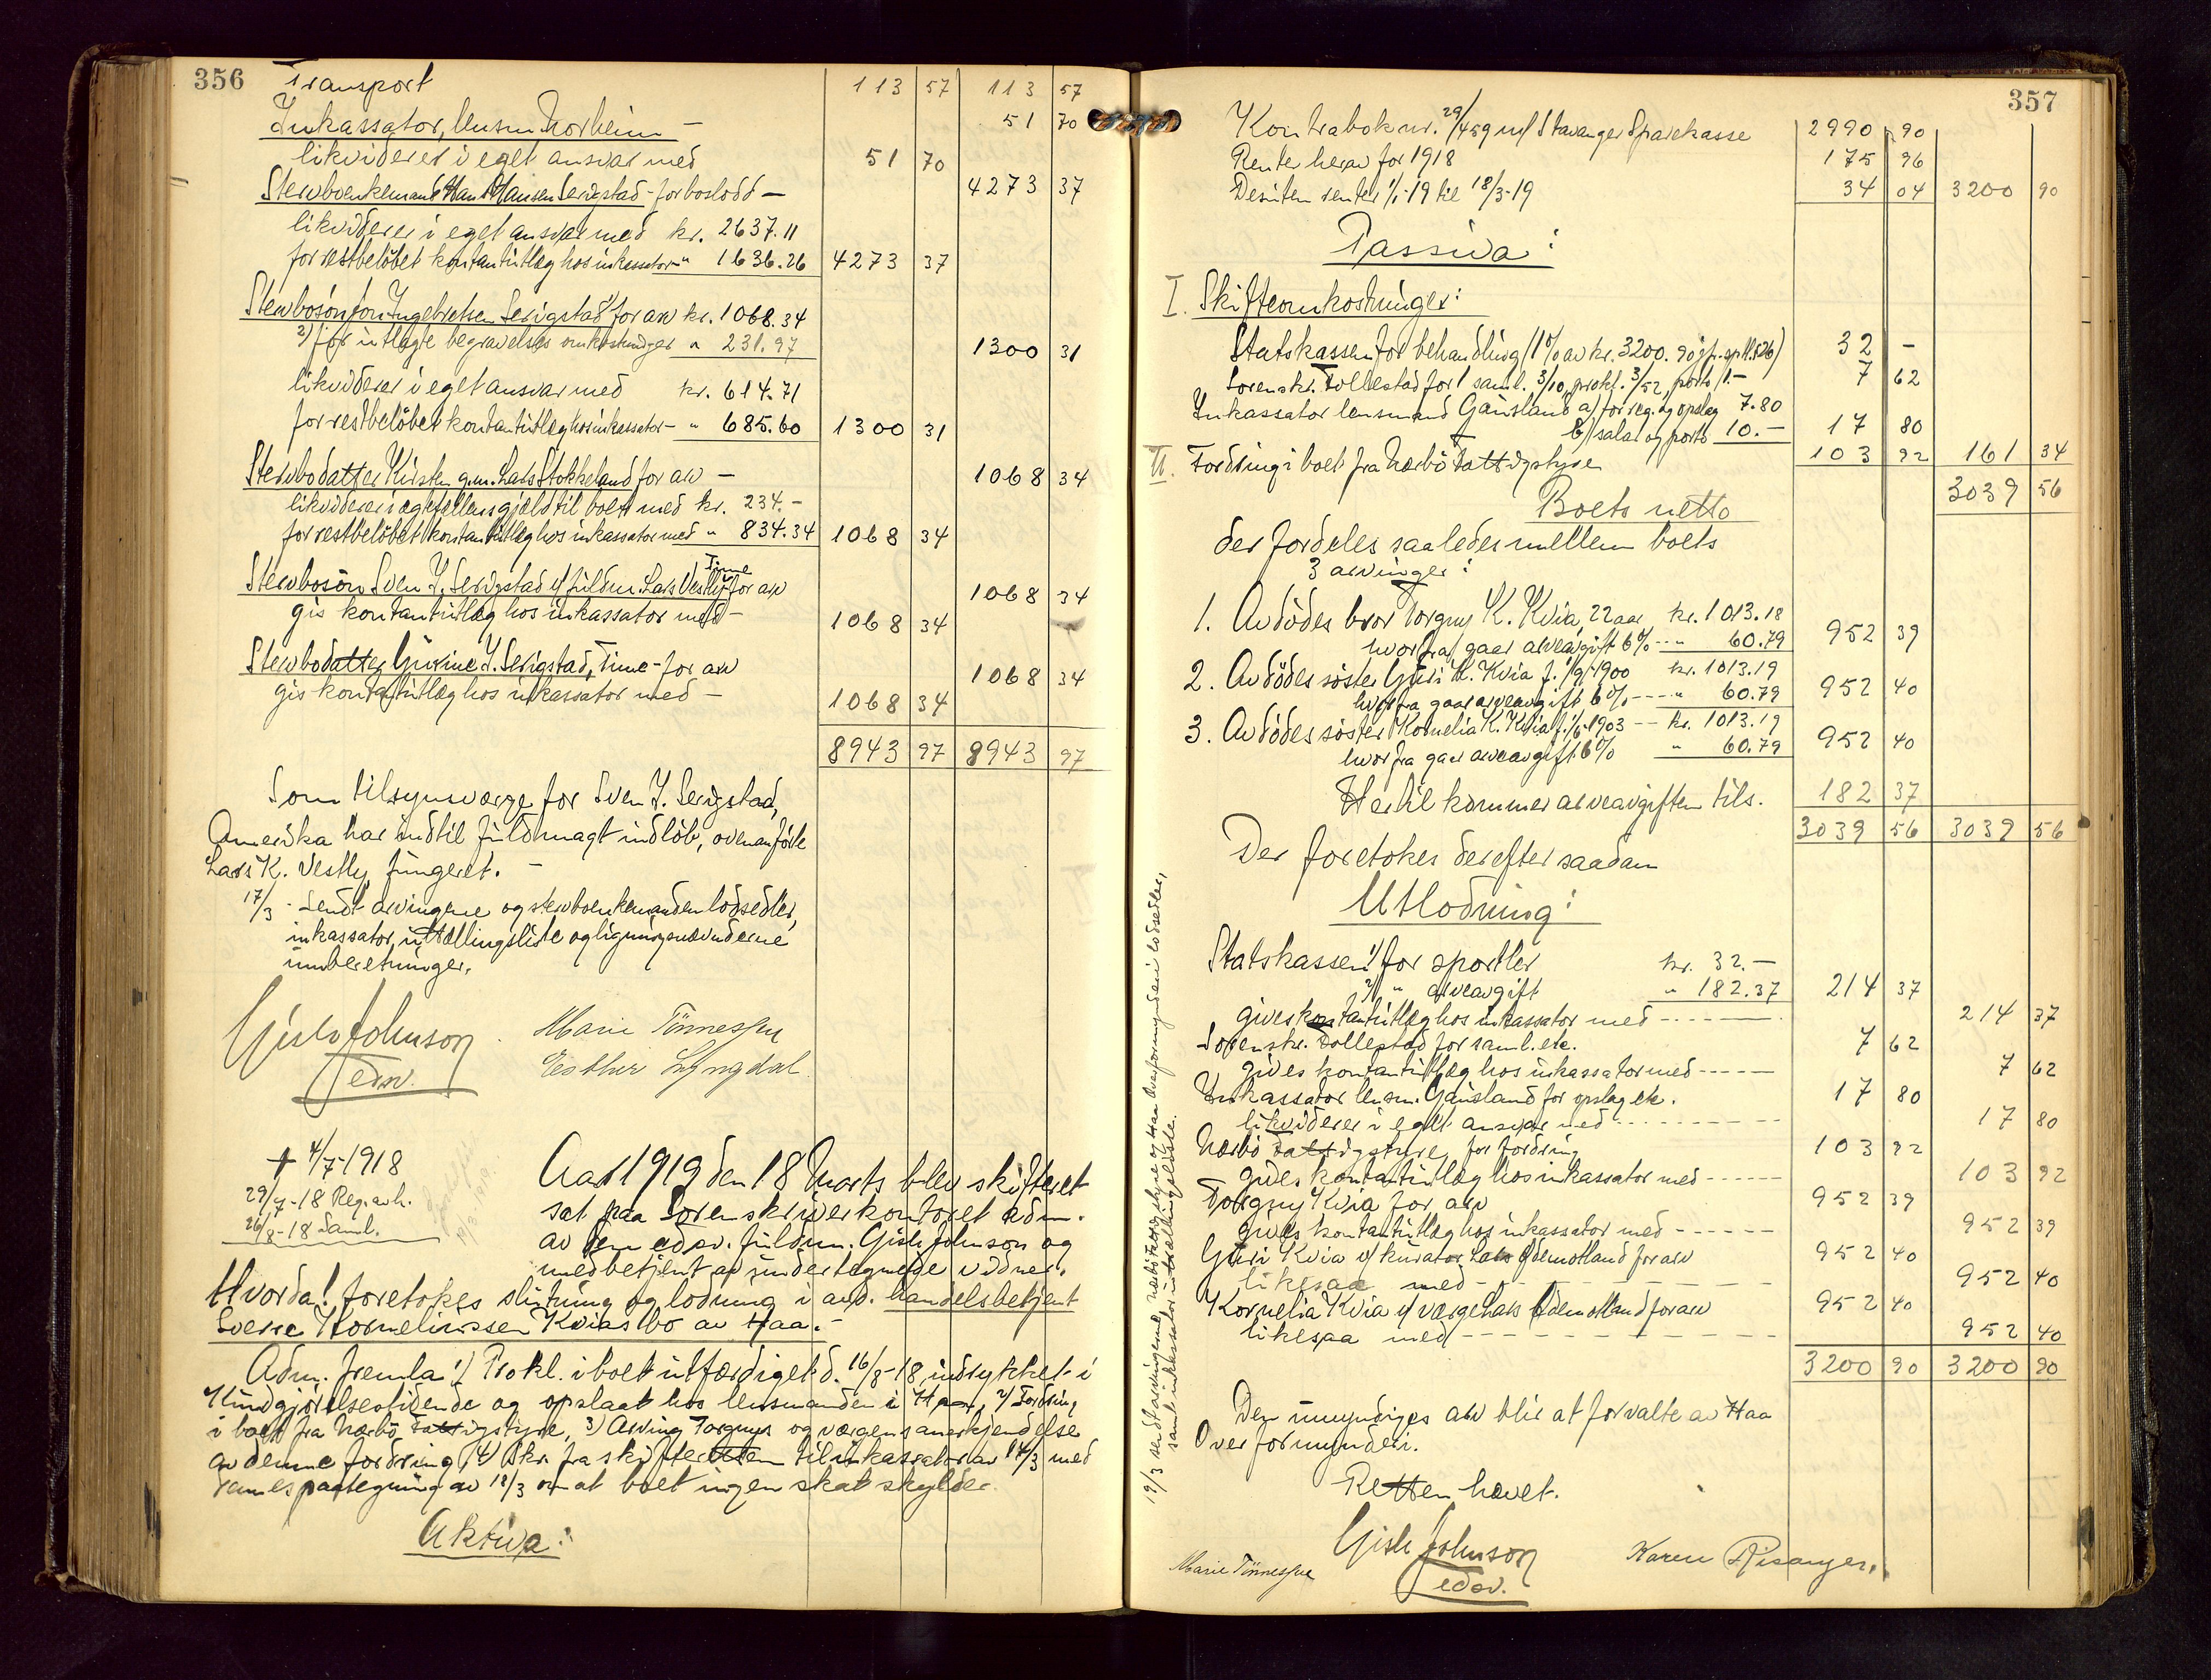 356
Transport 113 57 113 57
Inkassator, lensm. Norheim – 51 70
likviderer i eget ansvar med 51 70
Stervboenkemand Hans Hansen Serigstad – for boslodd – 4273 37
likviderer i eget ansvar med kr. 2637.11
for restbeløbet kontant utlæg hos inkassator – " 1636.26 4273 37
Stervbosøn Ingebretsen Serigstad 1) for arv kr. 1068.34
2) for utlagte begravelses omkostninger " 231.97 1300 31
likviderer i eget ansvar med kr. 614.71
for restbeløbet kontant utlæg hos inkassator – " 685.60 1300 31
Stervbodatter Kirsten g.m. Lars Stokkeland for arv – 1068 34
likviderer i egtefellens gjeld til boet med kr. 234.–
for restbeløbet kontant utlæg hos inkassator med " 834.34 1068 34
Time
Stervbosøn Sven I. Serigstad v/ fuldm. Lars Vestly for arv 1068 34
gis kontant utlæg hos inkassator med – 1068 34
Stervbodatter Gurine I. Serigstad, Time – for arv 1068 34
gis kontant utlæg hos inkassator med – 1068 34
8943 97 8943 97
Som tilsynsværge for Sven I. Serigstad,
Amerika har indtil fuldmagt indløb, ovenanførte
Lars K. Vestly fungeret. –
17/3 - Sendt arvingene og stervboenkemanden lodsedler,
inkassator uttællingsliste og ligningsnævnderne
innberetninger.
Gisle Johnson
edsv.
Marie Tönnessen
Esther Lyngdal
† 4/7-1918
29/7-18 Reg. avh.
26/8-18 Saml.
Aar 1919 den 18 Marts blev skifteret
sat paa Sorenskriverkontoret adm.
av den edsv. fuldm. Gisle Johnson og
medbetjent av undertegnede vidner.
Hvorda! foretokes slutning og lodning i avd. handelsbetjent
Sverre Korneliussen Kvias bo av Haa. –
Adm. fremla 1) Prokl. i boet utfærdiget d. 16/8-18, indrykket i
Kundgjørelsestidende og opslaat hos lensmanden i Haa, 2) Fordring
i boet fra Nærbø Fattigstyre, 3) Arving Torgnys og værgens anerkjendelse
av denne fordring, 4) Skr. fra skifteretten til inkassator av 14/3 med
sammes paategning av 18/3 om at boet ingen skat skylder.
Aktiva:
357
Kontrabok nr. 29/459 m/ Stavanger Sparekasse 2990 90
Rente herav for 1918 175 96
Desuten renter 1/1-19 til 18/3-19 34 04 3200 90
Passiva:
I. Skifteomkostninger:
Statskassen for behandling (1% av kr. 3200.90 jfr. sp.l. § 26) 32 –
Sorenskr. Tollestad for 1 saml. 3/10, prokl. 3/52, porto 1.– 7 62
Inkassator lensmand Gausland a) for reg. og opslag 7.80
b) salar og porto 10.– 17 80
II. Fordring i boet fra Nærbø Fattigstyre 103 92 161 34
Boets netto 3039 56
der fordeles saaledes mellem boets
3 arvinger:
1. Avdødes bror Torgny K. Kvia, 22 aar kr. 1013.18
hvorfra gaar arveavgift 6% --- " 60.79 952 39
2. Avdødes søster Guri K. Kvia f. 1/9-1900 kr. 1013.19
hvorfra gaar arveavgift 6% ---- " 60.79 952 40
3. Avdødes søster Kornelia K. Kvia f. 1/6-1903 -- kr. 1013.19
hvorfra gaar arveavgift 6% " 60.79 952 40
Hertil kommer arveavgiften tils. 182 37
3039 56 3039 56
Der foretokes derefter saadan
Utlodning:
Statskassen 1) for sportler kr. 32.–
2) " arveavgift " 182.37 214 37
gives kontant utlæg hos inkassator med ------ 214 37
Sorenskr. Tollestad for saml. etc. 7 62
gives kontant utlæg hos inkassator med ----- 7 62
Inkassator lensm. Gausland for opslag etc. 17 80
likviderer i eget ansvar med --------- 17 80
Nærbø Fattigstyre for fordring 103 92
gives kontant utlæg hos inkassator med ------ 103 92
Torgny Kvia for arv 952 39
gives kontant utlæg hos inkassator med ------ 952 39
Guri Kvia v/ kurator Lars Ødemotland for arv 952 40
likesaa med --------- 952 40
Kornelia Kvia v/ værge Lars Ødemotland for arv 952 40
likesaa med --------- 952 40
3200 90 3200 90
Den umyndiges arv blir at forvalte av Haa
Overformynderi.
Retten hævet.
Gisle Johnson
edsv.
Marie Tönnessen
Karen Risanger.
19/3 sendt arvingerne, fattigstyre og Haa Overformynderi lodsedler,
samt inkassator uttællingsliste.